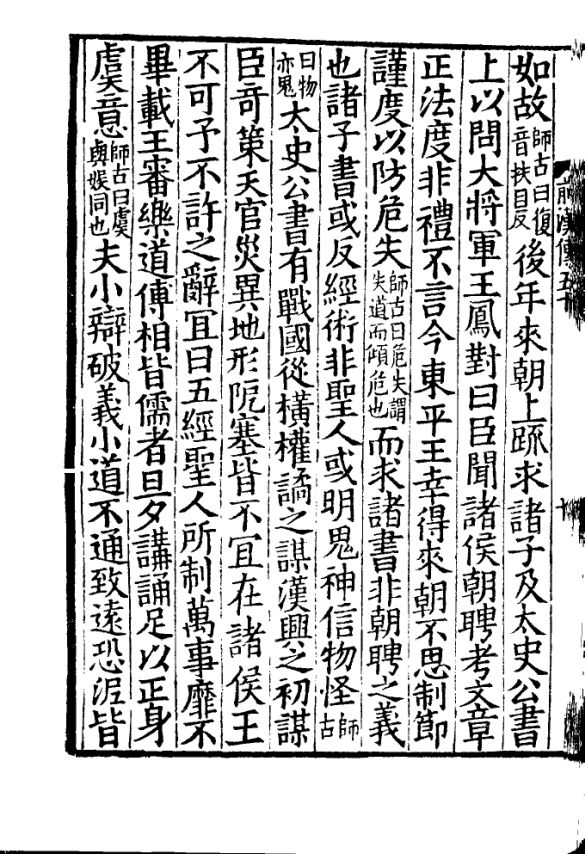 如故師古曰復音扶目反後年來朝上䟽求諸子及太史公書
上以問大將軍王鳳對曰臣聞諸侯朝聘考文章
正法度非禮不言今東平王幸得來朝不思制節
謹度以防危失師古曰危失謂失道而傾危也而求諸書非朝聘之義
也諸子書或反經術非聖人或明鬼神信物怪師古
曰物亦鬼太史公書有戰國從橫權譎之謀漢興之初謀
臣奇策天官災異地形阸塞皆不宜在諸侯王
不可予不許之辭宜曰五經聖人所制萬事靡不
畢載王審樂道傅相皆儒者旦夕講誦足以正身
虞意師古曰虞與娛同也夫小辯破義小道不通致遠恐泥皆